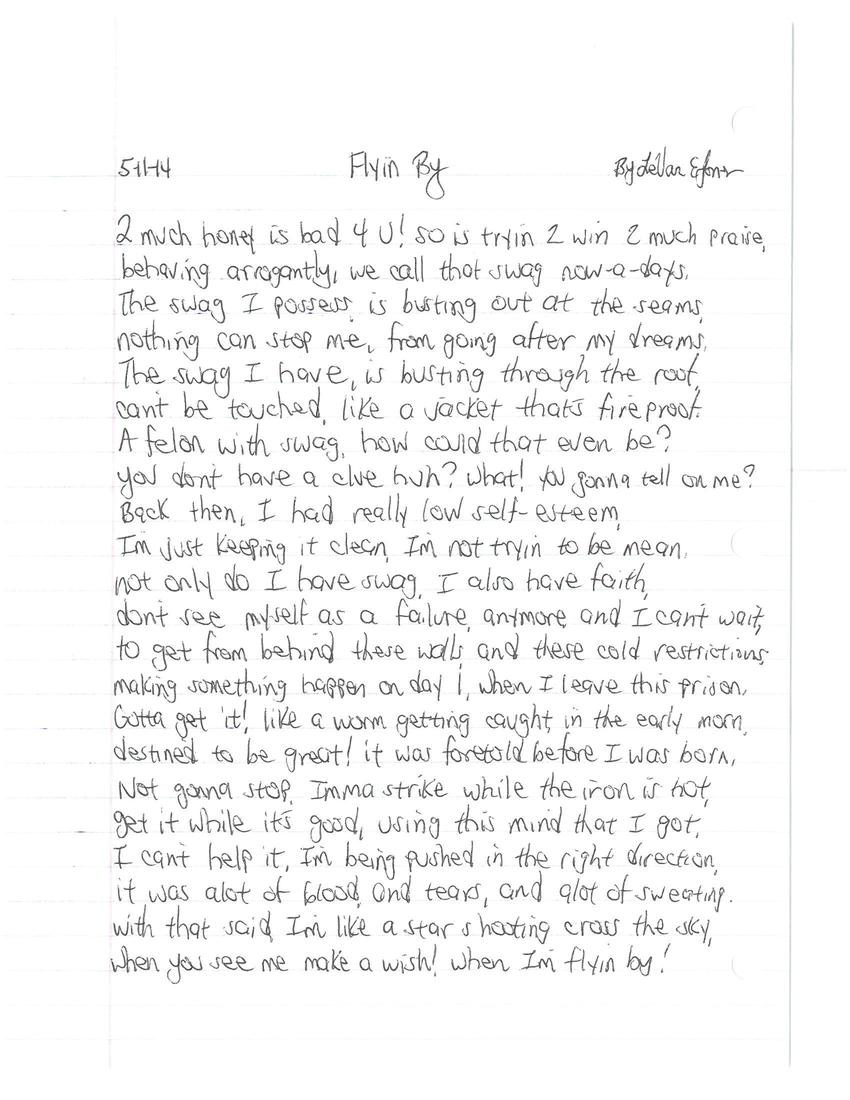 5-11-14 Flyin By By LeVar
2 much honey is bad 4 U! so is tryin 2 win 2 much praise,
behaving arrogantly, we call that swag now-a-days,
The swag I possess, is busting out at the seams,
nothing can stop me, from going after my dreams,
The swag I have, is busting through the roof,
cant be touched, like a jacket that's fireproof.
A felon with swag, how could that even be?
you dont have a clue huh? What! You gonna tell on me?
Back then, I had really low self-esteem,
I'm just keeping it clean, I'm not tryin to be mean,
not only do I have swag, I also have faith,
dont see myself as a failure, anymore, and I can't wait,
to get from behind these walls, and these cold restrictions
making something happen on day 1, when I leave this prison,
Gotta get it!, like a worm getting caught, in the early morn,
destined to be great! it was foretold before I was born,
Not gonna stop, Imma strike while the iron is hot,
get it while it's good, using this mind that I got,
I can't help it, I'm being pushed in the right direction,
it was alot of blood, and tears, and alot of sweating.
with that said, I'm like a star shooting cross the sky,
when you see me make a wish! when I'm flyin by!